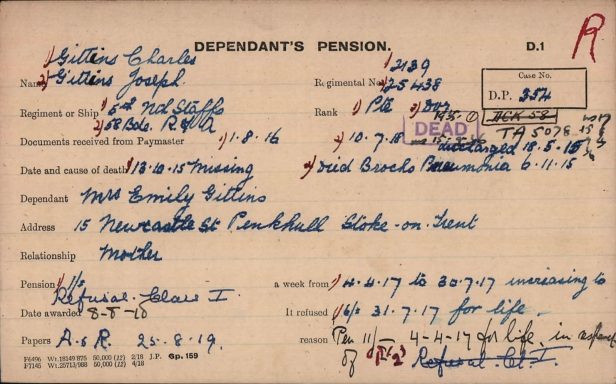 DEPENDANT'S PENSION. D.1
R
1) Gittins Charles
2) Gittins Joseph
Name
Regimental No. 1) 2139
2) 25438
Case No.
D.P. 354
Regiment or Ship 1) 5th Nd Staffs
2) 58 Bde. R.F.A
Rank 1) Pte 2) Dvr
1935
DEAD
TA 5078
Documents received from Paymaster 1) 1.8.16
2) 10.7.18
discharged 18.5.15
Date and cause of death 1) 13.10.15 Missing
2) Died Broncho Pneumonia 6.11.15
Dependant Mrs Emily Gittins
Address 15 Newcastle St Penkhull Stoke-on-Trent
Relationship Mother
Pension 1) 11/-
a week from 1) 4.4.17 to 30.7.17 increasing to
Refusal. Clause I.
It refused 16/- 31.7.17 for life.
Date awarded 8-8-18
reason Pen 11/- 4-4-17 for life. in respect
of (1 & 2) Refusal. Cl. I.
Papers A.S.R. 25.8.19.
F6496 Wt.18149/875 50,000 (12) 2/18 J.P. Gp.159
F7145 Wt.25713/988 50,000 (12) 4/18